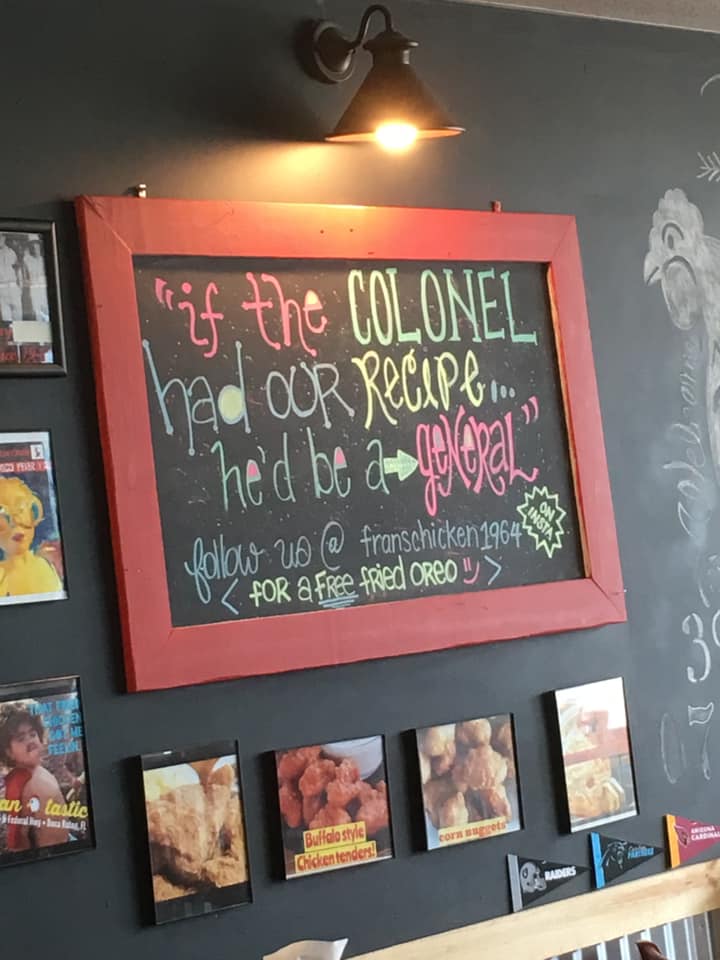 "if the COLONEL
had OUR RECIPE...
he'd be a GENERAL"
follow us @ franschicken1964
ON
INSTA
< for a FREE fried OREO >
THAT FRIED
CHICKEN
GOT ME
FEELIN'
an tastic
& Federal Hwy • Boca Raton, FL
Buffalo style
Chicken tenders!
corn nuggets
RAIDERS
PANTHERS
ARIZONA
CARDINALS